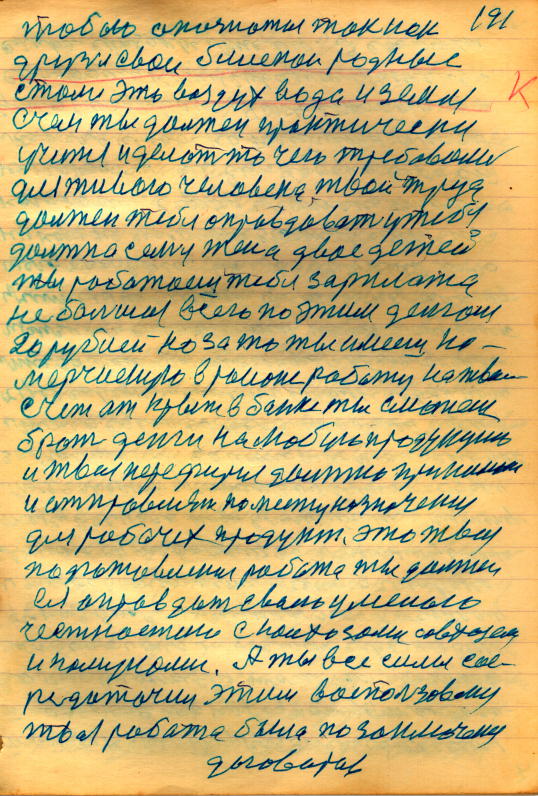 191
тобою опознаться так как
друзья свои близкои родные
стали это воздух вода и земля
Счаи ты должен практически
учится и делать то чего требовании
для живого человека, твой труд
должен тебя оправдовать у тебя
должна сем жена двое детей
ты работаеш тебя зарплата
не большая всего поэтим деньгам
20 рублей но за то ты имееш ко-
мерческую в районе работу на твои
счет открыт в банке ты сможеш
брать денги на любую продукцию
и твоя переферия должна принимать
и отправлять по месту назначения
для рабочех продукт. это твоя
подготовления работа ты должен
ея оправдать своею умелою
честностию с колхозами совхозами
и комунами. А ты все силы сос-
редаточил этим воспользовался
твоя работа была по заключению
договарах
К